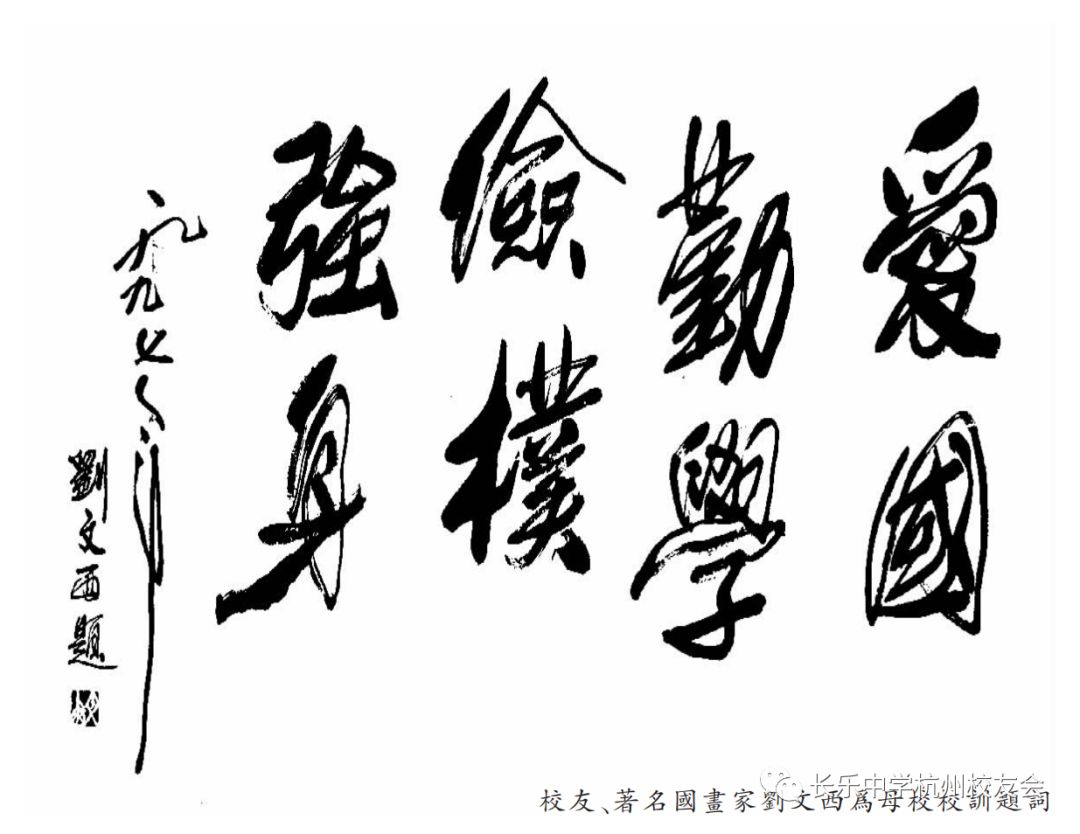 愛國
勤學
儉樸
強身
一九九七年八月
劉文西題
校友、著名國畫家劉文西爲母校校訓題詞
长乐中学杭州校友会